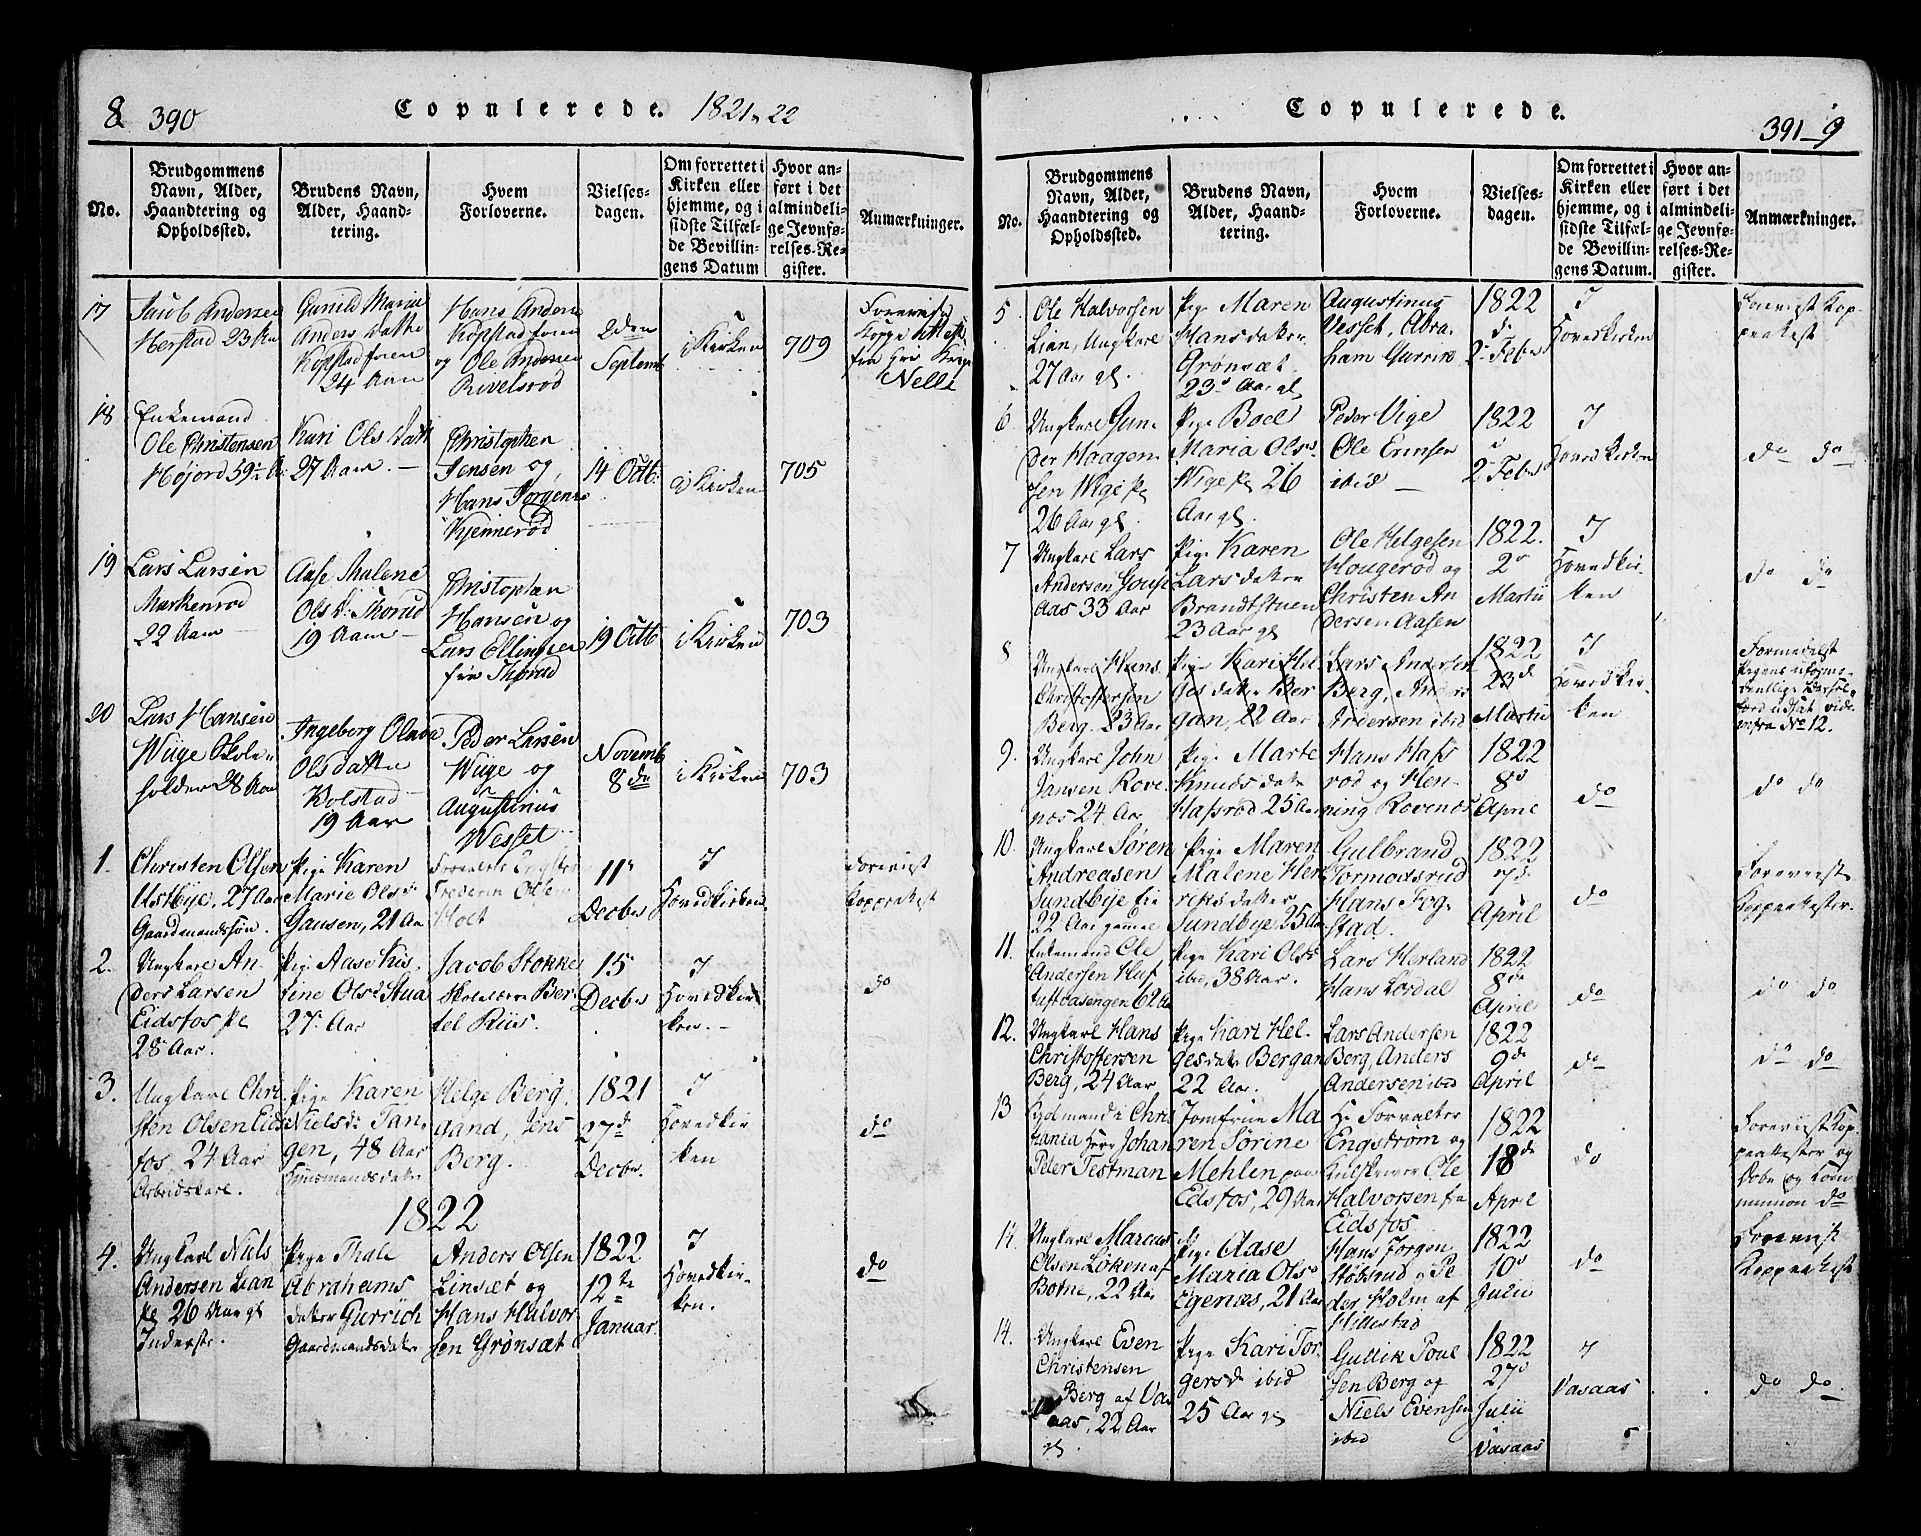 8 390 Copulerede. 1821-22
No.
Brudgommens Navn, Alder, Haandtering og Opholdssted.
Brudens Navn, Alder, Haandtering.
Hvem Forloverne.
Vielsesdagen.
Om forrettet i Kirken eller hjemme, og i sidste Tilfælde Bevillingens Datum
Hvor anført i det almindelige Jevnførelses-Register.
Anmærkninger.
17
Jacob Andersen
Herstad 23 Aar
Gunild Maria
Anders Datter
Kopstad
24 Aar
Hans Anders
Kopstad
og Ole Andersen
Revelsrod
2den
Septemb
i Kirken
709
Nelli
18
Enkemand
Ole Christensen
Højord 59½ A
Kari Ols Datt
27 Aar
Christopher
Jensen og
Hans Jørgens
Kjennerød
14 Octb:
i Kirken
705
19
Lars Larsen
Markenrød
22 Aar
Aase Malene
Ols D: Thorud
19 Aar
Christopher
Hansen og
Lars Ellingsen
fra Thorud
19 Octb
i Kirken
703
20
Lars Hansen
Wiige Skole=
holder 28 Aar
Ingeborg Olave
Olsdatter
Kolstad
19 Aar
Peder Larsen
Wiige og
Augustinus
Wesset
Novemb
8de
i Kirken
703
1.
Christen Olsen
Ustbye, 27 Aar
Gaardmandssøn.
Pige Karen
Marie Ols:
Gausen, 21 Aar
Holt
11te
Decbr
I
Hovedkirken
Forevist
Koppeattest
2.
Ungkarl An-
ders Larsen
Eidsfos
28 Aar.
Pige Aase Kis
tine Ols:
27 Aar
Jacob Stokke
Skolelærer Ber-
tel Riis.
15
Decbr
I
Hovedkir
ken.
do
3.
Ungkarl Chri
sten Olsen Eids
fos, 24 Aar
Arbeidskarl.
Pige Karen
Nielsd: Tan-
gen, 48 Aar
Huusmandsdatter
Helge Berg
aand, Jens
Berg.
1821
27d
Decbr.
I
Hovedkir
ken
do
1822
4.
Ungkarl Niels
Andersen Lian
26 Aar gl
Inderste.
Pige Thale
Abrahams
datter Gurrich
Gaardmandsdatter
Anders Olsen
Linsæt og
Hans Halvor
sen Grønsæt
1822
12te
Januar
I
Hovedkir-
ken.
do
Copulerede. 391-9
No.
Brudgommens Navn, Alder, Haandtering og Opholdssted.
Brudens Navn, Alder, Haandtering.
Hvem Forloverne.
Vielsesdagen.
Om forrettet i Kirken eller hjemme, og i sidste Tilfælde Bevillingens Datum.
Hvor anført i det almindelige Jevnførelses-Register.
Anmærkninger.
5
Ole Halvorsen
Lian, Ungkarl
27 Aar gl.
Pige Maren
Hansdatter
Grønsæt
23 Aar gl
Augustinus
Vesset, Abra-
ham Gurrik
1822
d
2 Febr
I
Hovedkirken
Forevist Kop-
peattest
6
Ungkarl Gun-
der Haagen-
sen Wige
26 Aar gl
Pige Boel
Maria Ols
Wige 26
Aar gl.
Peder Vige
Ole Ericsen
ibid
1822
2 Febr
I
Hovedkirken
do do
7
Ungkarl Lars
Andersen
aas 33 Aar
Pige Karen
Larsdatter
Brandtstuen
23 Aar gl
Ole Helgesen
Hougerod og
Christen An
dersen Aasen
1822.
2
Martii
I
Hovedkir-
ken
do do
8
Ungkarl Hans
Christoffersen
Berg, 23 Aar
Pige Kari Hel
gesdatter Ber
gan, 22 Aar
Lars Andersen
Berg, Anders
Andersen ibid
1822
23d
Martii
I
Hovedkir-
ken
Formedelst
Pigens
udsat vide
infra No 12.
9.
Ungkarl John
Jansen Rove
næs 24 Aar
Pige Marte
Knudsdatter
Hafsrod 25 Aar
Hans Hafs
rod og Hen-
ning Rovenæs
1822
8d
April
do
do do
10.
Ungkarl Søren
Andreasen
Sundbye
22 Aar gamle
Pige Maren
Malene Hen
riksdatter
Sundbye 25 Aar
Gulbrand
Tormodsrud
Hans Fog-
stad.
1822
7d
April
do
Foreviist
Koppeattester.
11.
Enkemand Ole
Andersen Huf
62 Aar
Pige Kari Ols
ibid, 38 Aar.
Lars Herland
Hans Lordal
1822
8de
April
do
do do
12.
Ungkarl Hans
Christoffersen
Berg, 24 Aar
Pige Kari Hel-
gesdatter Bergan
22 Aar.
Lars Andersen
Berg, Anders
Andersen ibid
1822
9de
April
do
do do
13
i Chris
tiania Herr Johan
Peter Testman
Jomfrue Ma
ren Sørine
Mehlen paa
Eidsfos, 29 Aar
Hr Forvalter
Engstrøm og
Ole
Halvorsen fra
Eidsfos
1822
18de
April
do
Foreviist Kop
peattester og
Døbe og Com
munion do
14.
Ungkarl Marcus
Olsen Løken af
Botne, 22 Aar
Pige Aase
Maria Ols
Egenæs, 21 Aar
Hans Jorgen
Støbsrud og Pe
der Holm af
Hillestad
1822
10d
Julii
do
Forevist
Koppeattest
14.
Ungkarl Even
Christensen
Berg af Vas
aas, 22 Aar
gl.
Pige Kari Tor-
gersd ibid
25 Aar gl
Gullik Poul
sen Berg og
Niels Evensen
ibid
1822
27d
Julii
Vasaas
I
Vasaas
do do